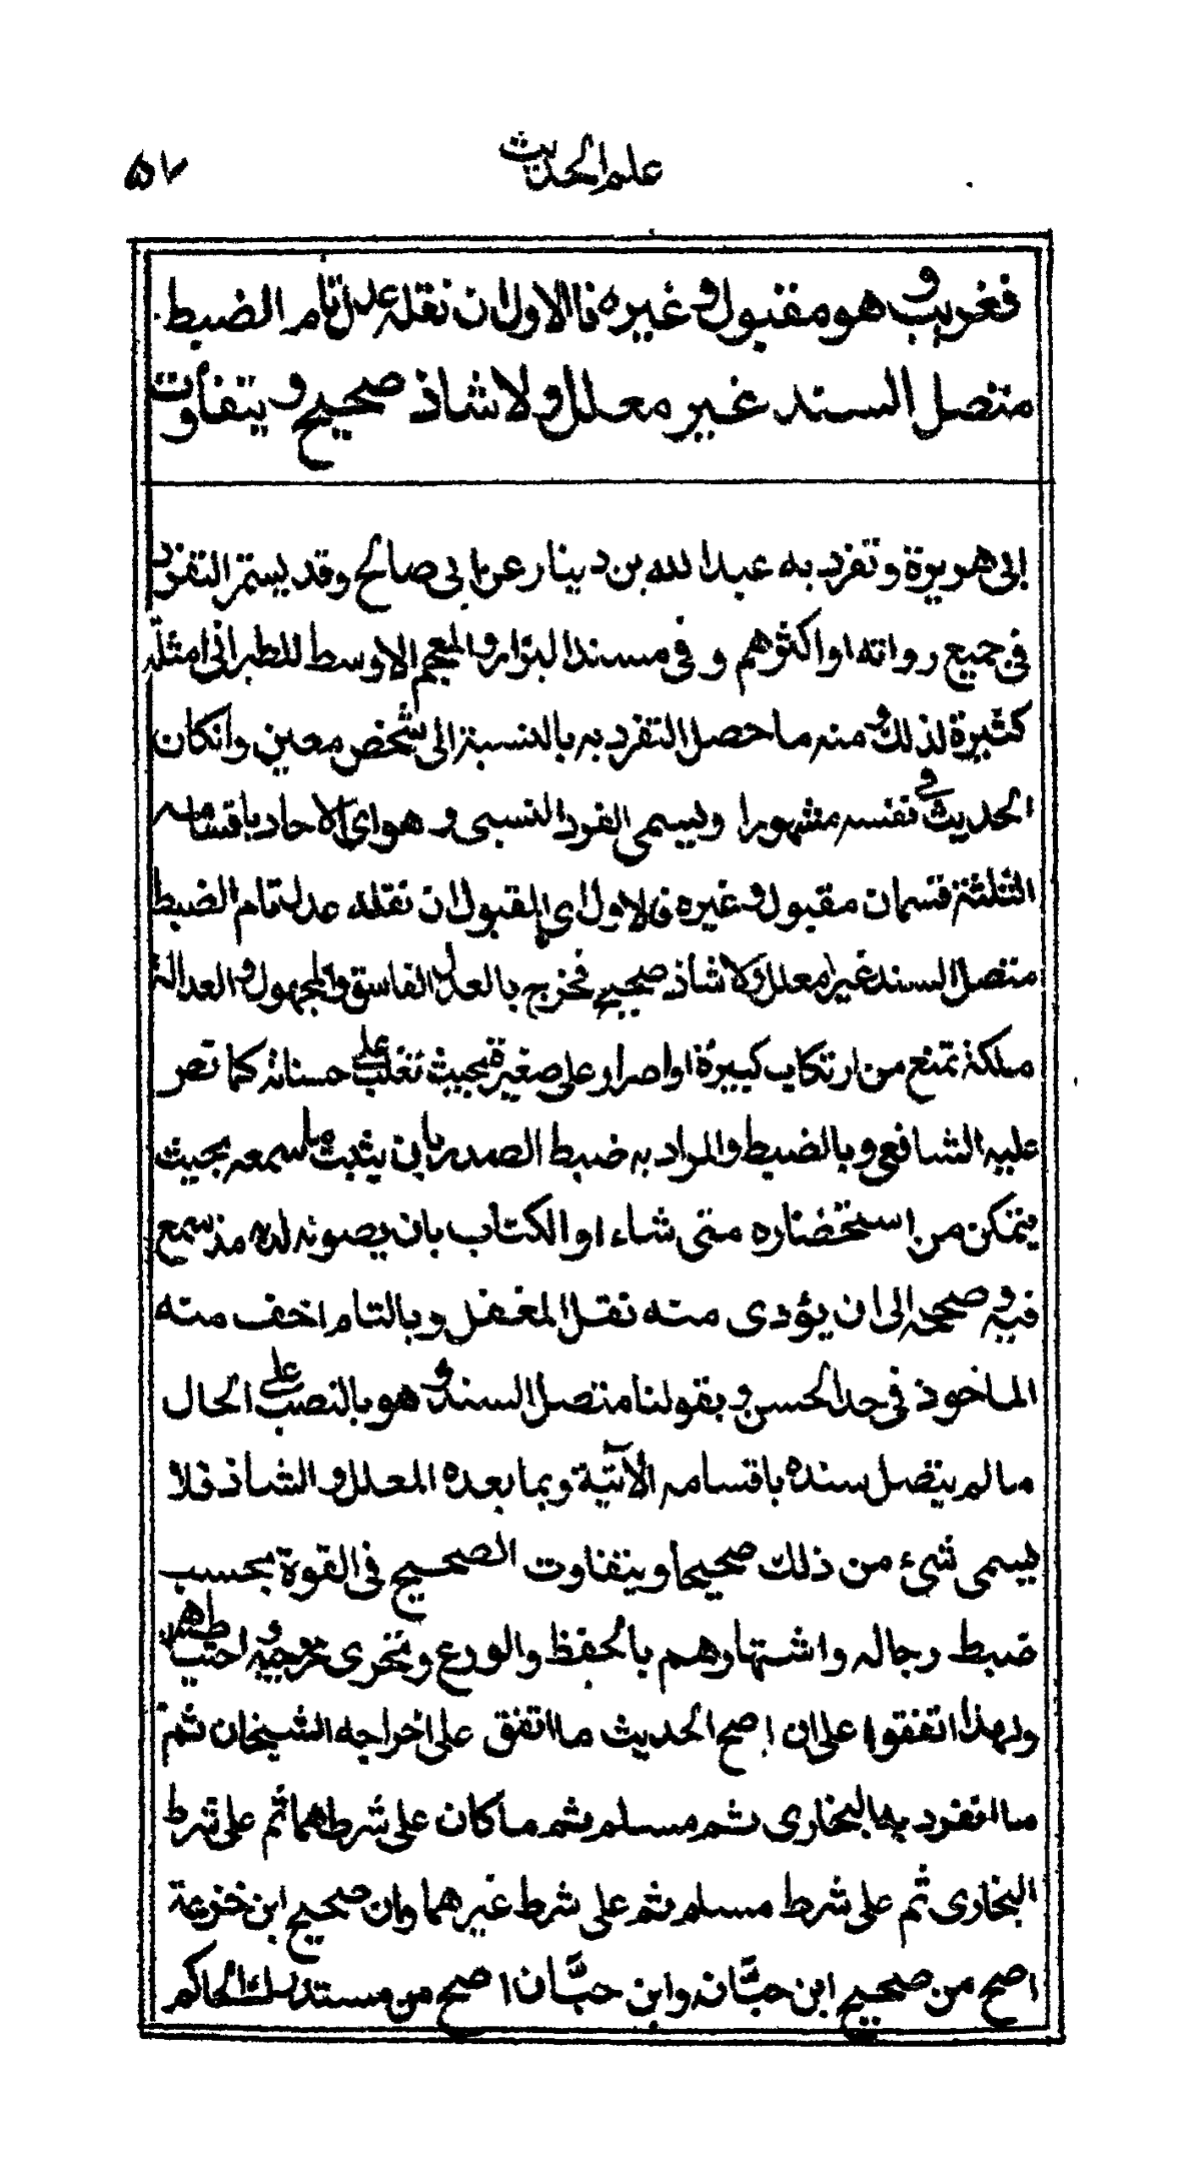 علم الحديث
٥٧
فغريب و هو مقبول و غيره فالاول ان نقله عدل تام الضبط
متصل السند غير معلل ولا شاذ صحيح و يتفاوت
ابى هريرة و تفرد به عبد الله بن دينار عن ابى صالح وقد يستمر التفرد
فى جميع رواته او اكثرهم و فى مسند البزار و المعجم الاوسط للطبرانى امثلة
كثيرة لذلك و منه ما حصل التفرد به بالنسبة الى شخص معين وانكان
الحديث فى نفسه مشهورا ويسمى الفرد النسبى و هو اى الاحاد باقسامه
الثلثة قسمان مقبول و غيره فالاول اى المقبول ان نقله عدل تام الضبط
متصل السند غير معلل ولا شاذ صحيح فخرج بالعدل الفاسق والمجهول و العدالة
ملكة تمنع من ارتكاب كبيرة او اصرار على صغيرة بحيث تغلب على حسناته كما نص
عليه الشافعى و بالضبط والمراد به ضبط الصدر بان يثبت ما سمعه بحيث
يتمكن من استحضاره متى شاء او الكتاب بان يصونه لديه مذ سمع
فيه و صححه الى ان يؤدى منه نقل المغفل و بالتام اخف منه
الماخوذ فى حد الحسن و بقولنا متصل السند و هو بالنصب على الحال
ما لم يتصل سنده باقسامه الآتية و بما بعده المعلل و الشاذ فلا
يسمى شئ من ذلك صحيحا و يتفاوت الصحيح فى القوة بحسب
ضبط رجاله واشتهارهم بالحفظ والورع و تحرى مخرجيه و احتياطهم
ولهذا اتفقوا على ان اصح الحديث ما اتفق على اخراجه الشيخان ثم
ما انفرد به البخارى ثم مسلم ثم ما كان على شرطهما ثم على شرط
البخارى ثم على شرط مسلم ثم على شرط غيرهما وان صحيح ابن خزيمة
اصح من صحيح ابن حبَّان وابن حبَّان اصح من مستدرك الحاكم